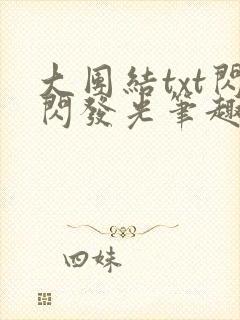 大團結txt閃
閃發光筆趣
四妹